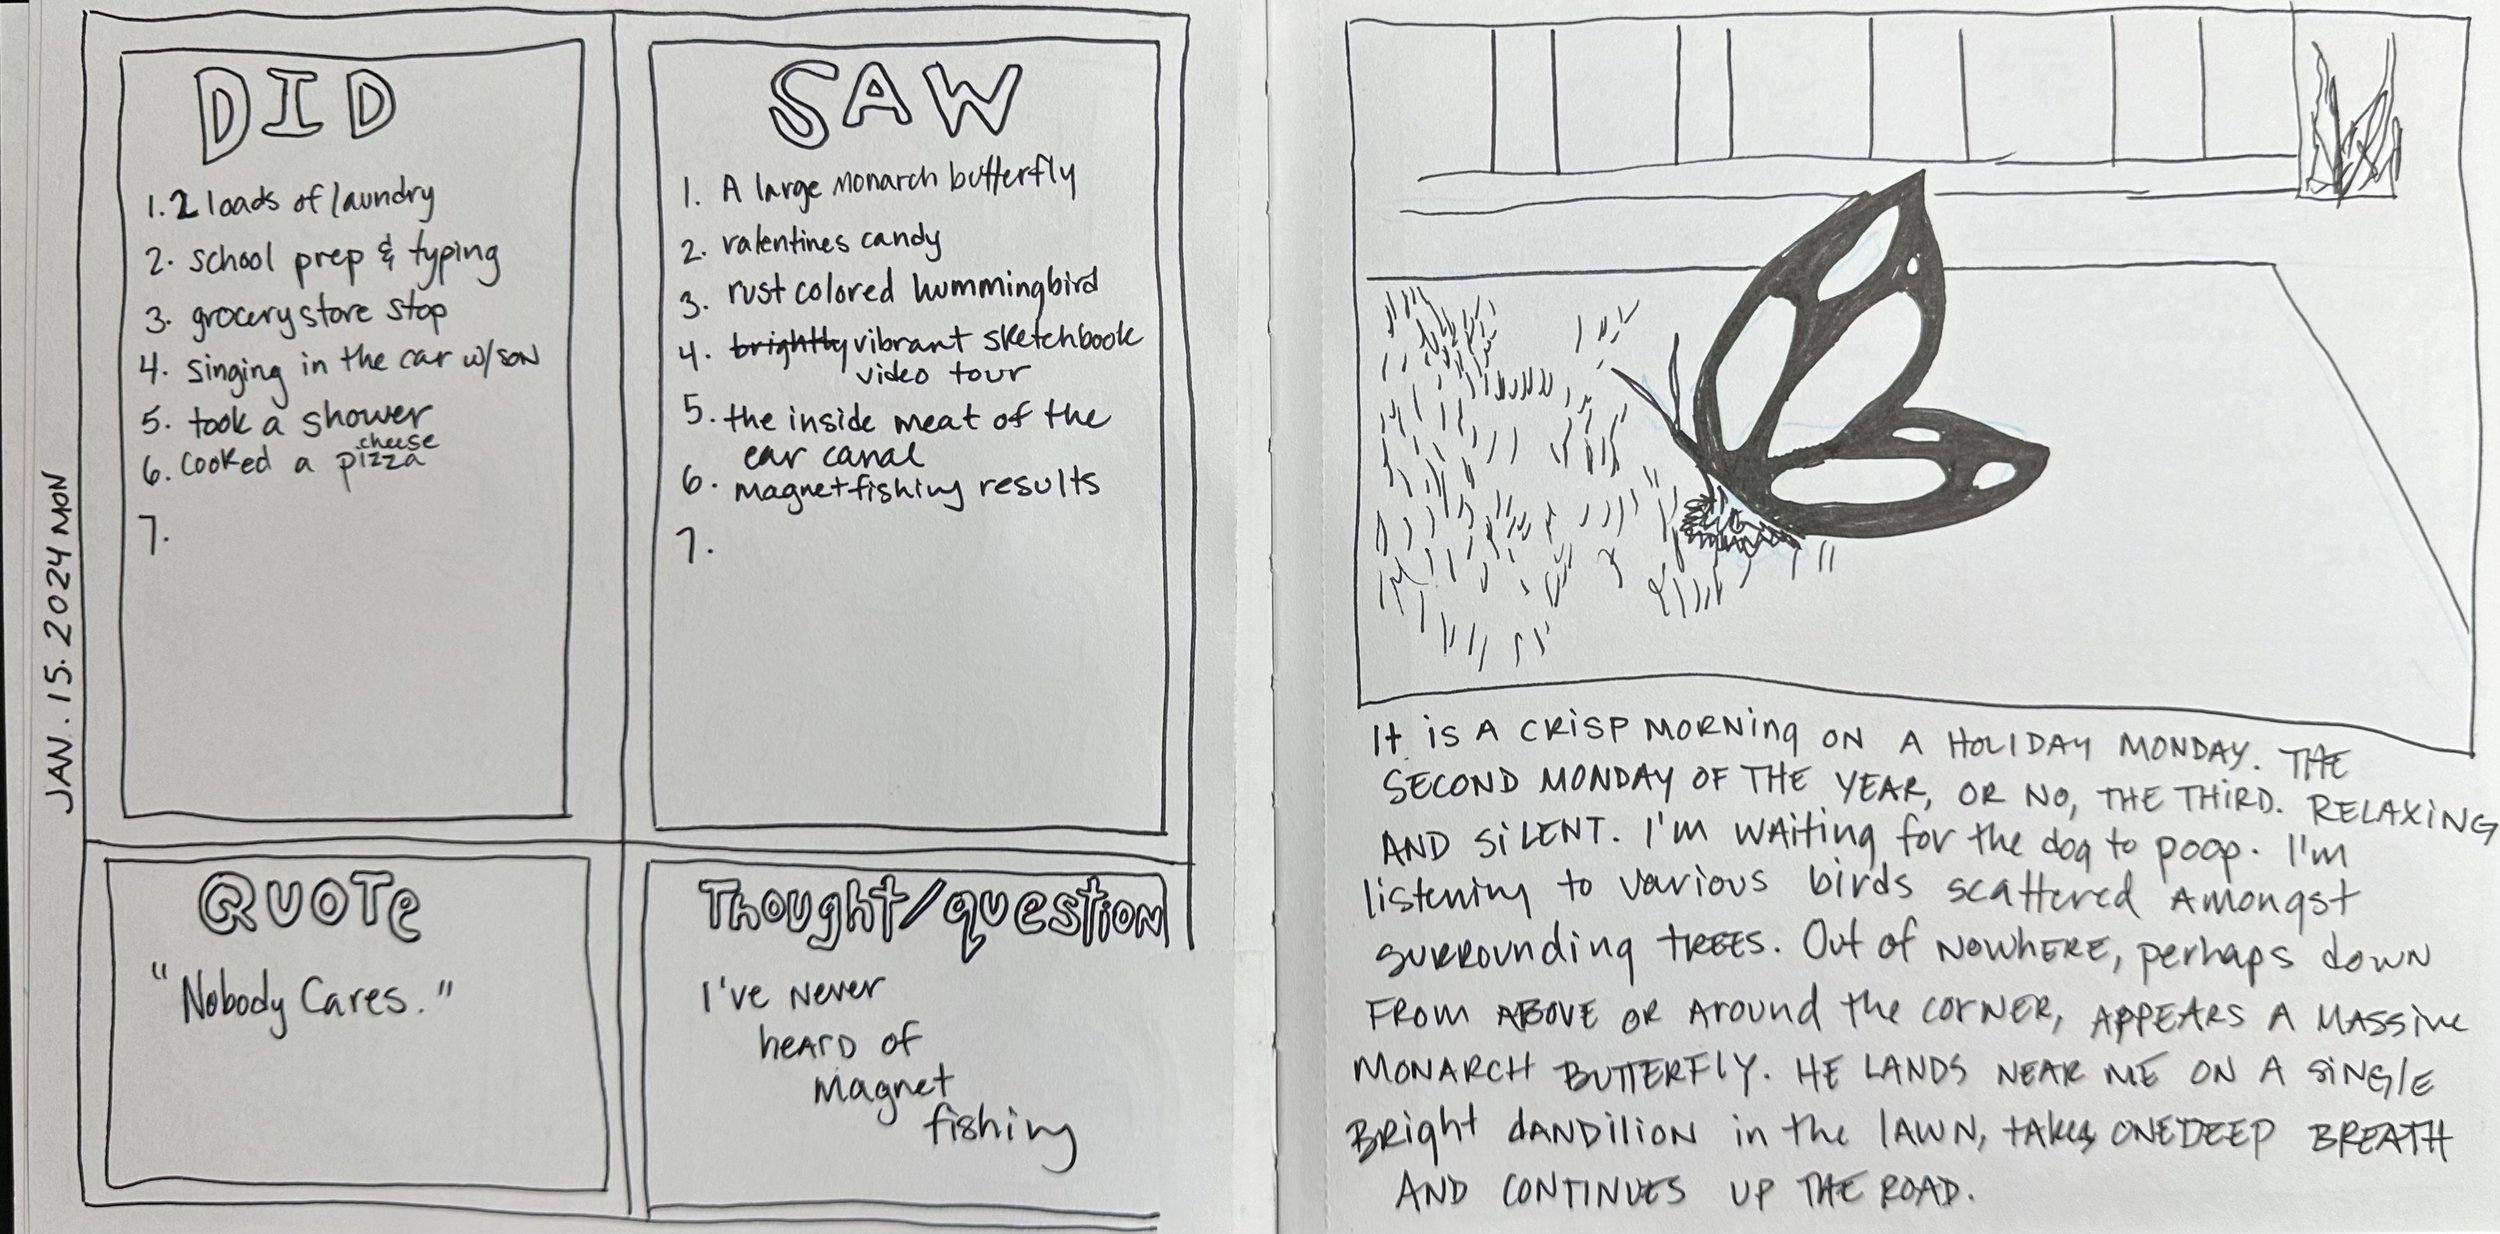 JAN. 15. 2024 MON
DID
1. 2 loads of laundry
2. school prep & typing
3. grocery store stop
4. singing in the car w/ son
5. took a shower
6. cooked a cheese pizza
7.
SAW
1. A large monarch butterfly
2. valentines candy
3. rust colored hummingbird
4. brightly vibrant sketchbook
video tour
5. the inside meat of the
ear canal
6. magnet fishing results
7.
QUOTe
"Nobody Cares."
Thought/question
I've never
heard of
magnet
fishing
It is A CRISP MORNing ON A HOLIDAY MONDAY. THE
SECOND MONDAY OF THE YEAR, OR NO, THE THIRD. RELAXING
AND SiLENT. I'm waiting for the dog to poop. I'm
listening to various birds scattered Amongst
surrounding TREES. Out of NOWHERE, perhaps down
FROM ABOVE OR Around the CORNER, APPEARS A MASSive
MONARCH BUTTERFLY. HE LANDS NEAR ME ON A SiNGlE
BRight dANDiliON in the lAWN, takes ONE DEEP BREATH
AND CONTINUES UP THE ROAD.